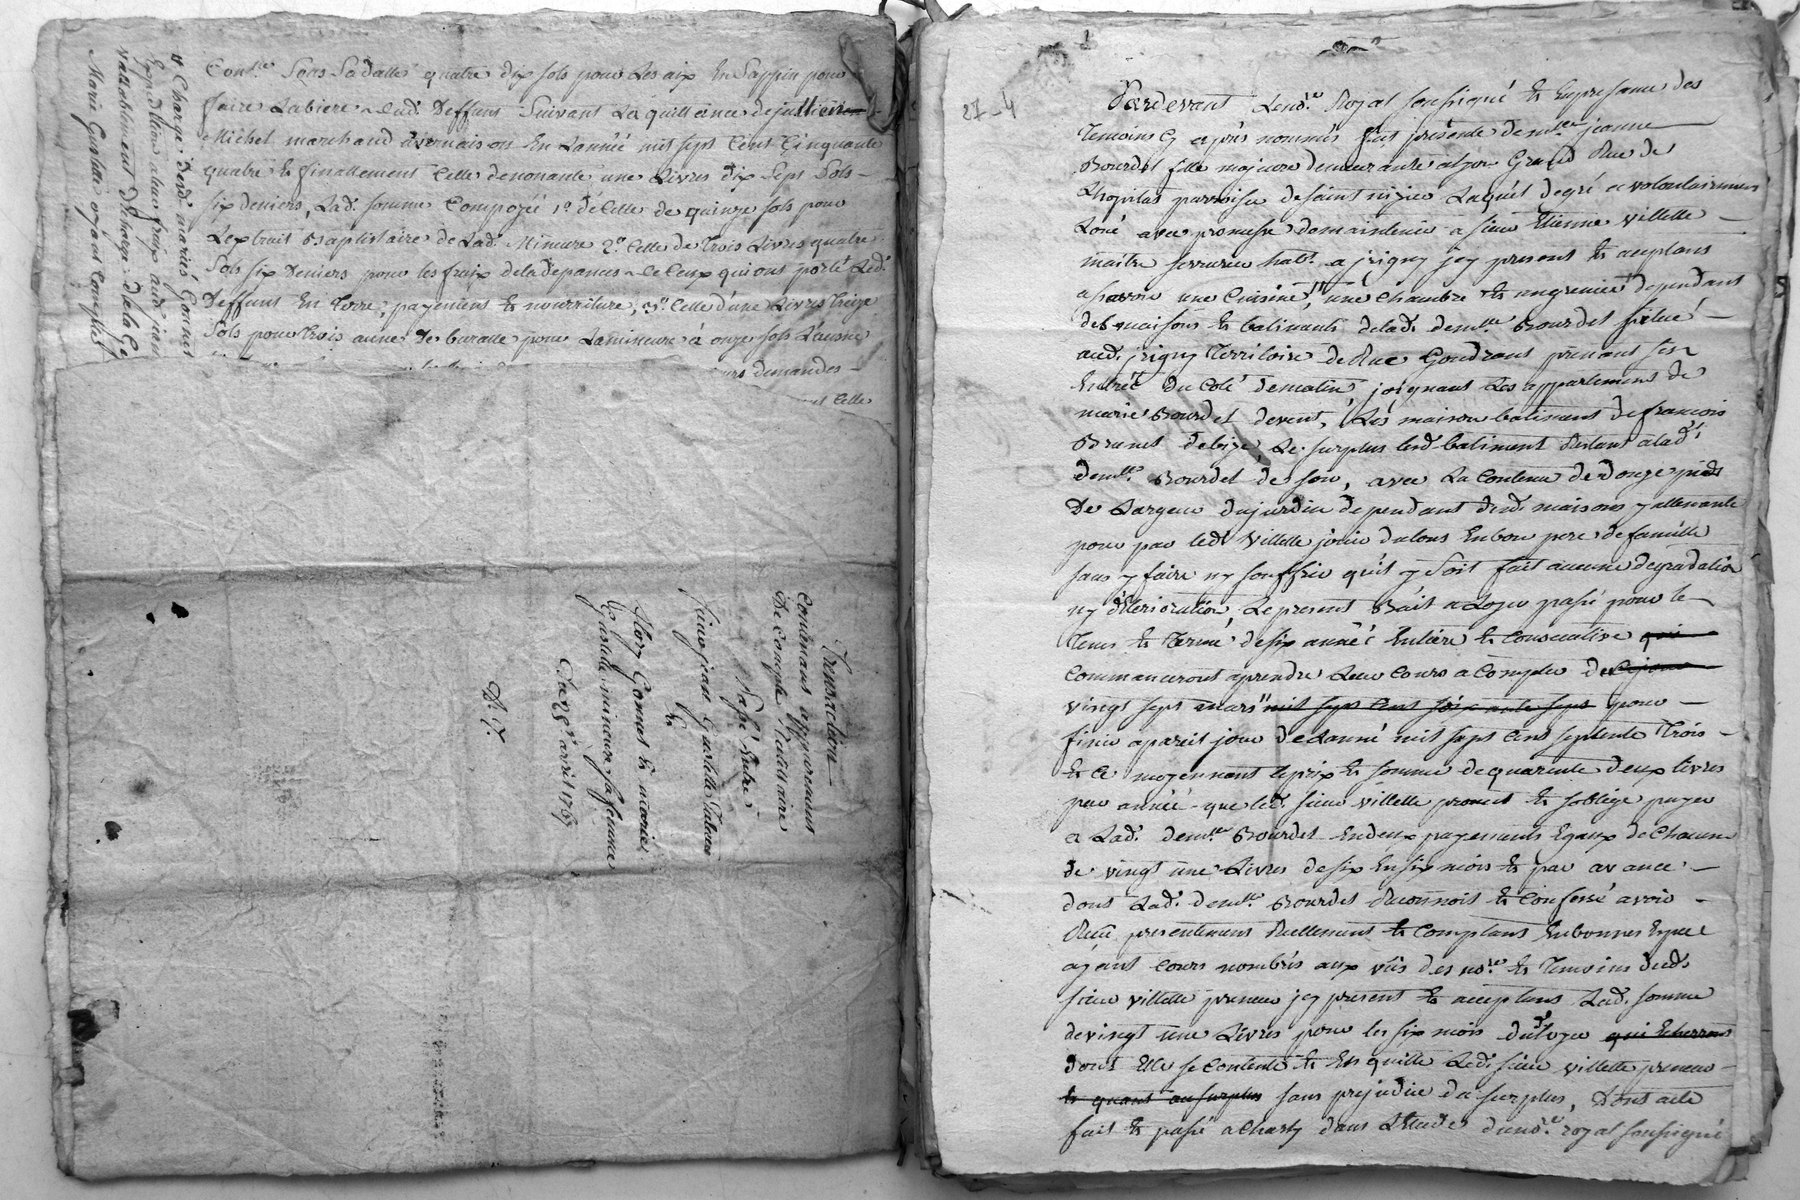 Con.lle Sous Sa datte quatre dix sols pour Les aix En Sappin pour
faire La biere dud. Deffunt Suivant La quittance de
Michel marchand a vernaison En L'année mil sept Cent Cinquante
quatre & finallement Celle de nonante une Livres dix Sept Sols
six deniers, Lad. somme Composée 1.º de Celle de quinze sols pour
L'extrait Baptistaire de Lad. Mineure 2.º Celle de Trois Livres quatre
Sols six Deniers pour les fraix de la depance de Ceux qui ont porté Led.
Deffunt En Terre, payement & nourriture, 3.º Celle d'une Livres treize
Sols pour trois aune de buratte pour La mineure à onze sols L'ausne
demandes
Celle
à Charge desd. mariés Gonnet
Expedition a leur fraix aud. jean
Vallablement déchargé de la Ge
Marie Gustelle ayant Compte
Transaction
Contenant appurement
De Compte Tutellaire
Passé Entre
Sieur jean Gustelle Tuteur
Et
Flory Gonnet & marie
Gustelle mineure sa femme
Du 28e avril 1767
Pardevant Le no.re Royal soussigné & En presence des
Temoins Cy après nommés fut presente dem.lle jeanne
Bourdet fille majeure demeurante a Lyon Grande Rue de
L'hopital parroisse de saint nizier Laquelle de gré a volontairement
Loué avec promesse de maintenir à sieur Etienne Villette
maitre serrurier hab.t a jrigny jcy present & acceptant
a savoir une Cuisine, une Chambre & un grenier dependant
des maisons & batiments de lad. dem.lle Bourdet situé
aud. jrigny Territoire de Rue Gondrans prenant ses
Entrée du Coté de matin, joignant Les appartement de
marie Bourdet de vent, Les maison batiment de francois
Brunet de bize, Le surplus desd. batiment Restant a lad.
dem.lle Bourdet de soir, avec La Contenue de Douze pieds
De Largeur du jardin dependant desd. maisons y attenante
pour par led. Villette jouir du tout En bon pere de famille
sans y faire ny souffrir qu'il y Soit fait aucune degradation
ny déterioration, Le present Bail a Loyer passé pour le
Tems & Terme de six année Entiere & Consecutive qui
Commanceront a prendre Leur Cours a Compter de Ce jour
vingt sept mars mil sept Cent soixante sept pour
finir a pareil jour De L'anné mil sept Cent septente Trois
& Ce moyennant le prix & somme de quarente deux livres
par année que led. sieur Villette promet & s'oblige payer
a Lad. dem.lle Bourdet En deux payements Egaux de Chacun
de vingt une Livres de six En six mois & par avance
dont Lad. dem.lle Bourdet Reconnoit & Confesse avoir
Reçu presentement Reellement & Comptant En bonnes Espece
ayant Cours nombrés aux vüs des no.re & Temoins dud.
sieur Villette preneur jcy present & acceptant Lad. somme
de vingt une Livres pour les six mois du Loyer qui Echerront
dont Elle se Contente & En quitte Led. sieur Villette preneur
& quant au surplus sans prejudice du surplus, Dont acte
fait & passé a Charly dans L'Etude du no.re royal soussigné
27-4